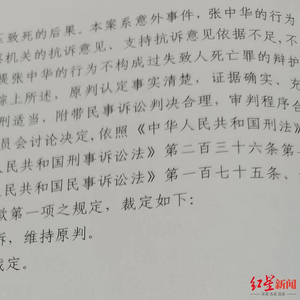 致死的后果。本案系意外事件,张中华的行为
机关的抗诉意见、支持抗诉意见依据不足,不
张中华的行为不构成过失致人死亡罪的辩护
综上所述,原判认定事实清楚,证据确实、充
刑适当,附带民事诉讼判决合理,审判程序合
员会讨论决定,依照《中华人民共和国刑法》
民共和国刑事诉讼法》第二百三十六条第一
人民共和国民事诉讼法》第一百七十五条、
款第一项之规定,裁定如下:
诉,维持原判。
裁定。
红星新闻